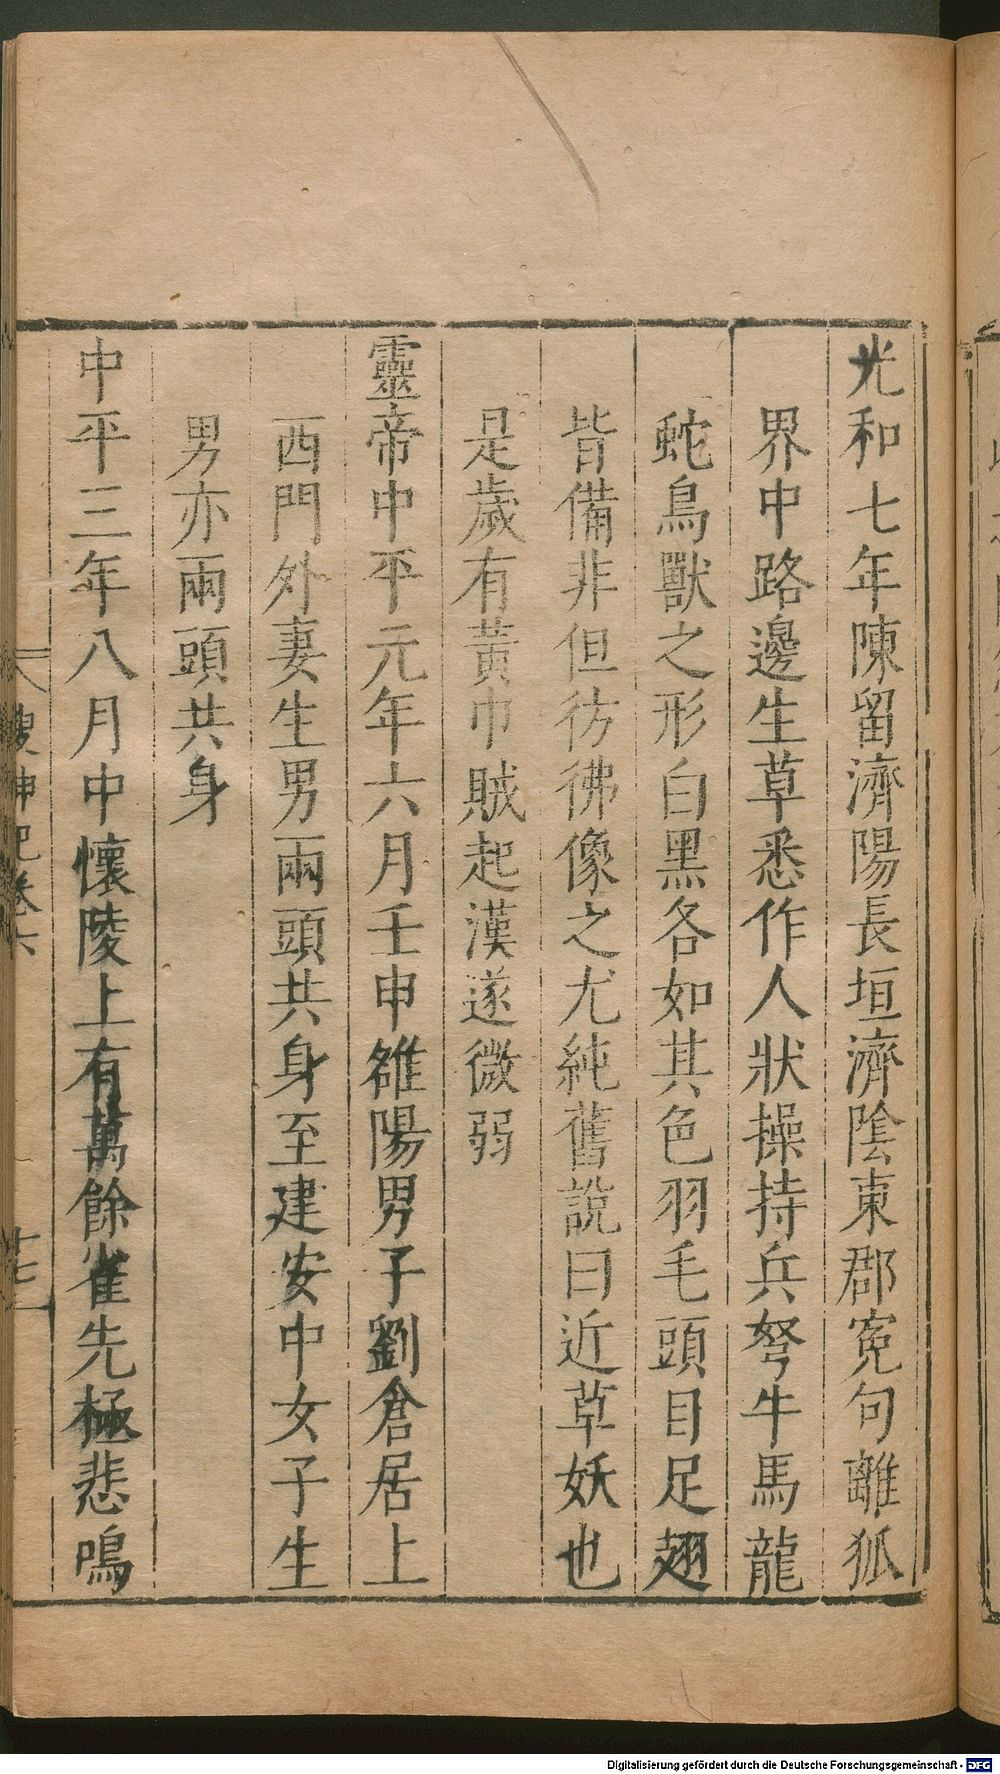 光和七年陳留濟陽長垣濟陰東郡寃句離狐
界中路邊生草悉作人狀操持兵弩牛馬龍
蛇鳥獸之形白黑各如其色羽毛頭目足翅
皆備非但彷彿像之尤純舊說曰近草妖也
是歲有黃巾賊起漢遂微弱
靈帝中平元年六月壬申雒陽男子劉倉居上
西門外妻生男兩頭共身至建安中女子生
男亦兩頭共身
中平三年八月中懷陵上有萬餘雀先極悲鳴
搜神記卷六
十七
Digitalisierung gefördert durch die Deutsche Forschungsgemeinschaft - DFG